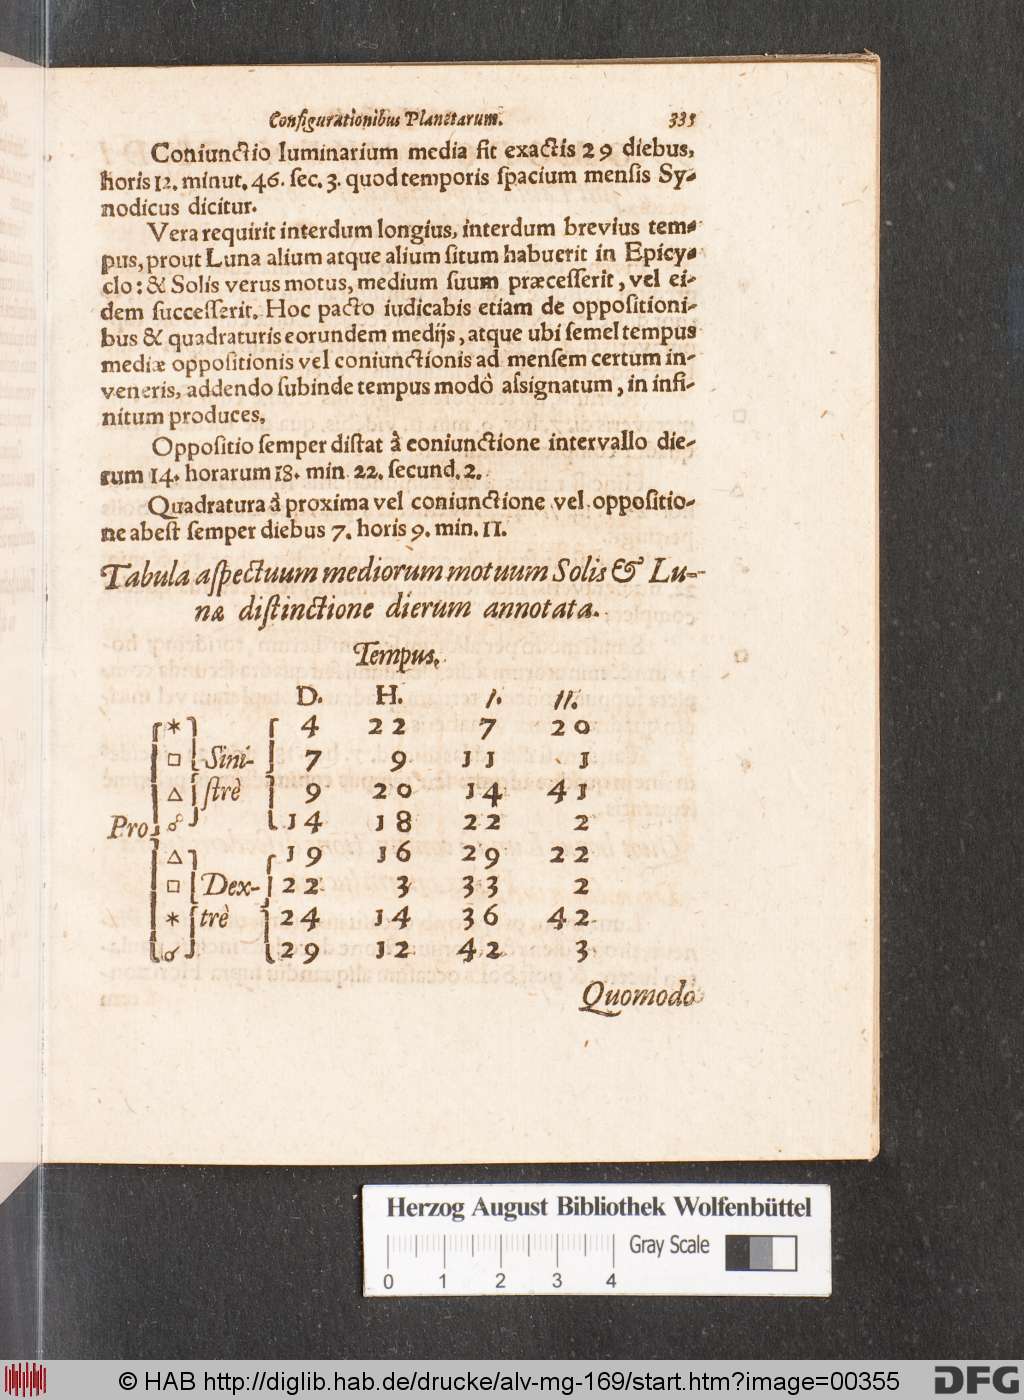 Configurationibus Planetarum. 335
Coniunctio luminarium media fit exactis 29 diebus,
horis 12. minut. 46. sec. 3. quod temporis spacium mensis Sy-
nodicus dicitur.
Vera requirit interdum longius, interdum brevius tem-
pus, prout Luna alium atque alium situm habuerit in Epicy-
clo: & Solis verus motus, medium suum præcesserit, vel ei-
dem successerit. Hoc pacto iudicabis etiam de oppositioni-
bus & quadraturis eorundem medijs, atque ubi semel tempus
mediæ oppositionis vel coniunctionis ad mensem certum in-
veneris, addendo subinde tempus modò assignatum, in infi-
nitum produces.
Oppositio semper distat à coniunctione intervallo die-
rum 14. horarum 18. min. 22. secund. 2.
Quadratura à proxima vel coniunctione vel oppositio-
ne abest semper diebus 7. horis 9. min. 11.
Tabula aspectuum mediorum motuum Solis & Lu-
næ distinctione dierum annotata.
Tempus.
D. H. I. II.
⚹ 4 22 7 20
□ Sini- 7 9 11 1
△ strè 9 20 14 41
Pro ☍ 14 18 22 2
△ 19 16 29 22
□ Dex- 22 3 33 2
⚹ trè 24 14 36 42
☌ 29 12 42 3
Quomodo
Herzog August Bibliothek Wolfenbüttel
Gray Scale
0 1 2 3 4
© HAB http://diglib.hab.de/drucke/alv-mg-169/start.htm?image=00355
DFG